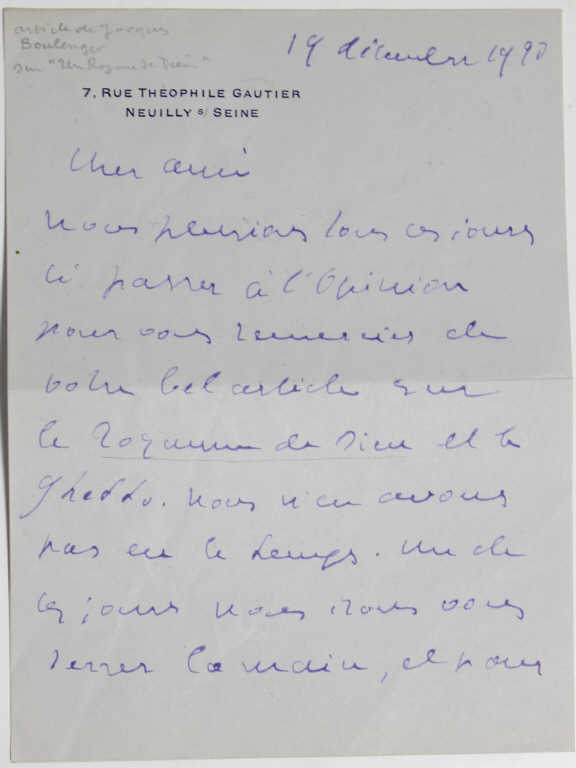 article de Jacques
Boulenger
sur "Un Royaume de Dieu"
19 décembre 1920
7, RUE THÉOPHILE GAUTIER
NEUILLY S/ SEINE
Cher ami
Nous pensions tous ces jours
ci passer à l'Opinion
pour vous remercier de
votre bel article sur
le Royaume de Dieu et le
Ghetto. Nous n'en avons
pas eu le temps. Un de
ces jours nous irons vous
serrer la main, et pour